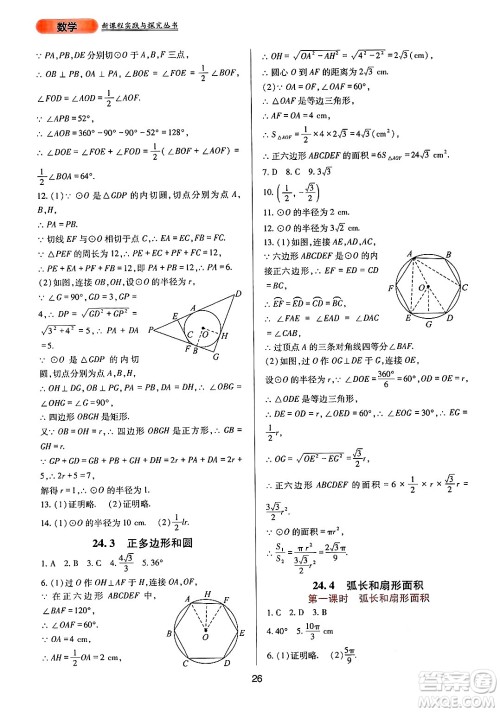 数学 新课程实践与探究丛书
∵ PA，PB，DE 分别切⊙O 于三点，
∴ OB ⊥ PB，OA ⊥ PA，∠DOE = $\frac{1}{2}$
∠FOE = ∠AOE，∠FOD = ∠AOD = $\frac{1}{2}$
∠FOA.
∵ ∠APB = 52°，
∴ ∠AOB = 360° - 90° - 90° - 52° = 128°，
∴ ∠DOE = ∠FOE + ∠FOD = $\frac{1}{2}$(∠FOB + ∠FOA) =
$\frac{1}{2}$∠BOA = 64°.
12. (1)∵ ⊙O 是△GDP 的内切圆，切点分别为点 A，
B/H，
∴ PA = PB.
∵ 切线 EF 与⊙O 相交于点 C，∴ EA = EC，FC = FB.
∵ △PEF 的周长为 12，
∴ PE + EF + PF = 12，∴ PE + EC + PF + FC = 12，
∴ PE + EA + PF + FB = PA + PB = 12，∴ PA = 6.
(2)如图，连接 OA，OB，OH，设⊙O 的半径为 r.
∵ ∠G = 90°，GP = 3，GD =
4，∴ PD = $\sqrt{GD^2 + GP^2}$ =
$\sqrt{3^2 + 4^2}$ = 5.
∵ ⊙O 是△GDP 的内切圆，切点分别为点 A，B，H，
∴ OH ⊥ DG，OB ⊥ PG，PA = PB，DA = DH，∴ ∠OBG =
∠OHG = 90°.
∴ 四边形 OBGH 是矩形.
∵ OB = OH = r，∴ 四边形 OBGH 是正方形，∴ GB =
GH = r.
∵ GP + GD - PD = GB + PB + GH + DH - PA - DA =
GB + GH，∴ 3 + 4 - 5 = 2r，
解得 r = 1，∴ ⊙O 的半径为 1.
13. (1)证明略. (2)证明略.
14. (1)⊙O 的半径为 2 cm. (2)$\frac{1}{2}$lr.
24.3 正多边形和圆
1. A 2. B 3. C 4. $\frac{4\sqrt{3}}{3}$ 5. 9
6. (1)如图，过圆心 O 作 OH ⊥ AF 于点 H.
∵ 在正六边形 ABCDEF 中，∠AOF =
$\frac{1}{6}$ × 360° =
60°，OA =
OF，∴ ∠AOH =
$\frac{1}{2}$∠AOF = 30°，
△OAF 是等边三
角形.
∵ OA = 4 cm，
∴ AH = $\frac{1}{2}$OA =
2 cm，
∴ OH = $\sqrt{OA^2 - AH^2}$ = $\sqrt{4^2 - 2^2}$ = 2$\sqrt{3}$ cm，
∴ 圆心 O 到 AF 的距离为 2$\sqrt{3}$ cm.
(2)∵ OA = OF，∠AOF = 60°，
∴ △OAF 是等边三角形，
∴ AF = OA = 4 cm，
∴ S△OAF = $\frac{1}{2}$ × 4 × 2$\sqrt{3}$ = 4$\sqrt{3}$ cm²，
∴ 正六边形 ABCDEF 的面积 = 6S△OAF = 24$\sqrt{3}$ cm².
7. D 8. C 9. 3$\sqrt{3}$
10. ($\frac{1}{2}$, -$\frac{\sqrt{3}}{2}$)
11. ⊙O 的半径为 2 cm.
12. ⊙O 的半径为 3$\sqrt{2}$ cm.
13. (1)如图，连接 AE，AD，AC.
∵ 六边形 ABCDEF 是⊙O 的内
接正六边形，∴ EF = ED = CD
= BC，
∴ EF = ED = CD = BC，
∴ ∠FAE = ∠EAD = ∠DAC
= ∠CAB，
∴ 过顶点 A 的三条对角线四等分∠BAF.
(2)如图，过点 O 作 OG ⊥ DE 于点 G，连接 OD，OE.
设⊙O 的半径为 r，∵ ∠DOE = $\frac{360°}{6}$ = 60°，OD = OE = r，
∴ △ODE 是等边三角形，
∴ DE = OD = OE = r，∠OEG = 60°，∴ EG = $\frac{1}{2}$r，
∴ OG = $\sqrt{OE^2 - EG^2}$ = $\frac{\sqrt{3}}{2}$r，
∴ 正六边形 ABCDEF 的面积 = 6 × $\frac{1}{2}$ × r × $\frac{\sqrt{3}}{2}$r =
$\frac{3\sqrt{3}}{2}$r².
∵ ⊙O 的面积 = πr²，
∴ $\frac{S_1}{S_2}$ = $\frac{πr^2}{\frac{3\sqrt{3}}{2}r^2}$ = $\frac{2\sqrt{3}π}{9}$.
24.4 弧长和扇形面积
第一课时 弧长和扇形面积
1. C 2. D 3. B
4. 40° 5. $\frac{10π}{3}$ cm
6. (1)证明略. (2)$\frac{2\sqrt{5}π}{9}$.
26